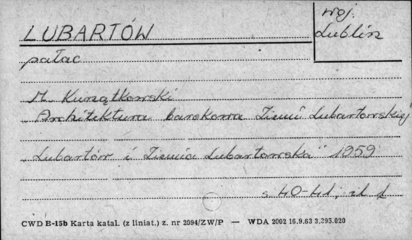 LUBARTÓW
woj.
Lublin
pałac
M. Kurzątkowski
Architektura barokowa Ziemi Lubartowskiej
"Lubartów i Ziemia Lubartowska" 1959
s 40-41, il 1
CWD B-15b Karta katal. (z liniat.) z. nr 2094/ZW/P — WDA 2002 16.9.63 3,295.020